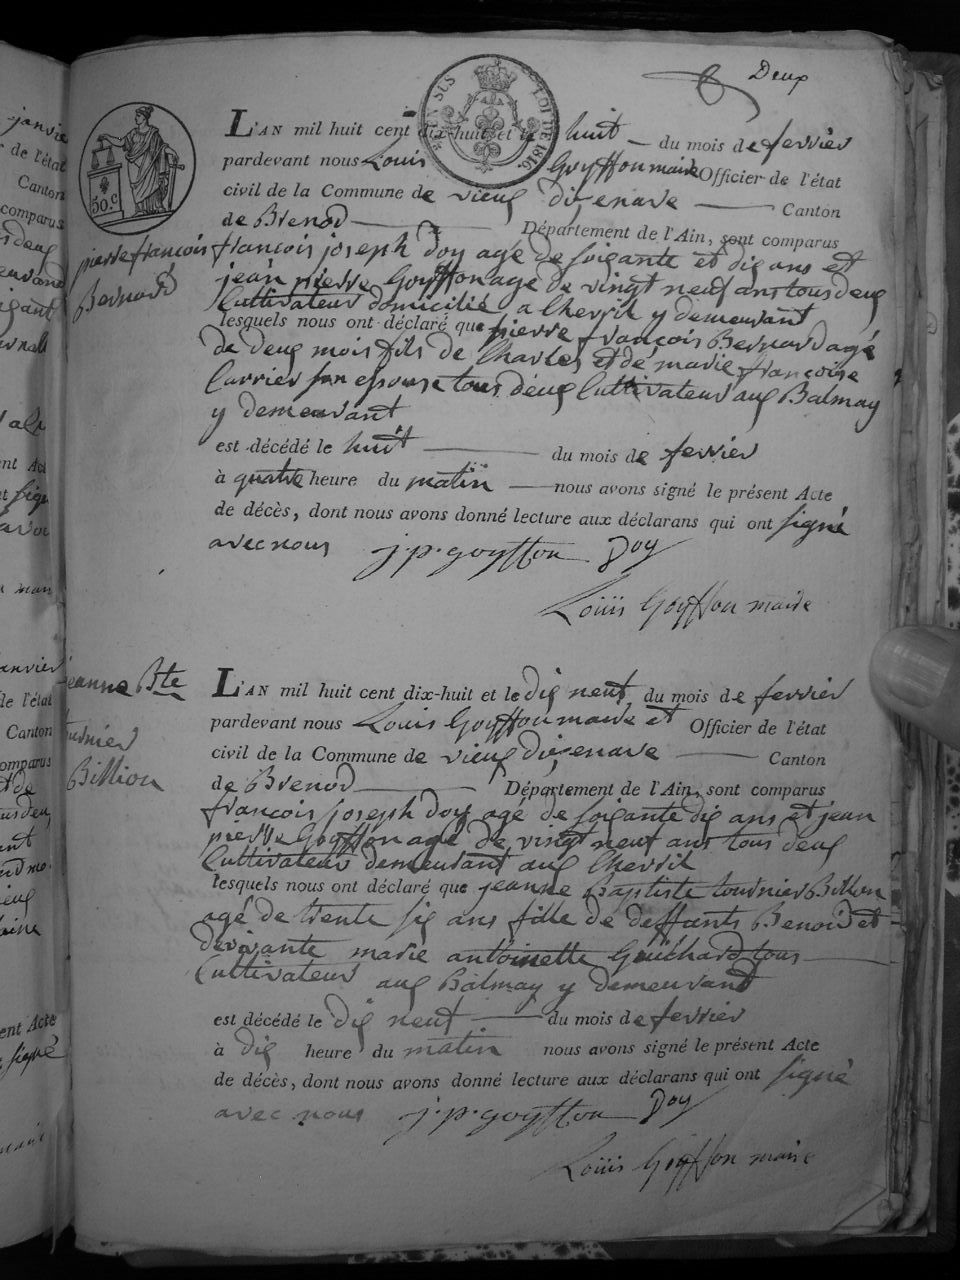 Deux
EN SUS LOI DE 1816.
50.c
L'AN mil huit cent dix-huit et le huit du mois de ferrier
pardevant nous Louis Goyffon maire Officier de l'état
civil de la Commune de vieux dizenave Canton
de Brenod Département de l'Ain, sont comparus
pierre françois
Bernard
françois joseph Doy agé de soixante et dix ans et
jean pierre Goyffon agé de vingt neuf ans tous deux
Cultivateur domicilié a Chevril y demeurant
lesquels nous ont déclaré que pierre françois Bernard agé
de deux mois fils de Charles et de marie françoise
Carrier son epouse tous deux Cultivateur aux Balmay
y demeurant
est décédé le huit du mois de ferrier
à quatre heure du matin nous avons signé le présent Acte
de décès, dont nous avons donné lecture aux déclarans qui ont signé
avec nous j.p. goyffon Doy
Louiis Goyffon maire
jeanne Bte
turnier
Billion
L'AN mil huit cent dix-huit et le dix neuf du mois de ferrier
pardevant nous Louis Goyffon maire et Officier de l'état
civil de la Commune de vieux dizenave Canton
de Brenod Département de l'Ain, sont comparus
françois joseph Doy agé de soixante dix ans et jean
pierre Goyffon agé de vingt neuf ans tous deux
Cultivateur demeurant aux Chevril
lesquels nous ont déclaré que jeanne Baptiste tournier Billion
agé de trente six ans fille de deffants Benoid et
de vivante marie antoinette Guichard tous
Cultivateur aux Balmay y demeurant
est décédé le dix neuf du mois de ferrier
à dix heure du matin nous avons signé le présent Acte
de décès, dont nous avons donné lecture aux déclarans qui ont signé
avec nous j.p. goyffon Doy
Louiis Goyffon maire